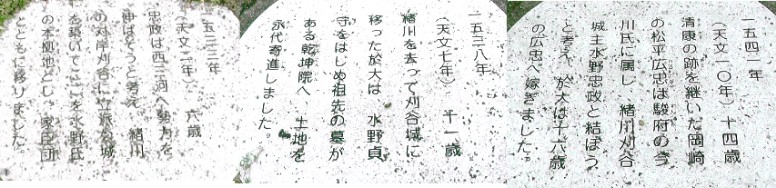 一五三三年
(天文二年) 六歳
忠政は西三河へ勢力を
伸ばそうと考え 緒川
の対岸刈谷に立派な城
を築いてここを水野氏
の本拠地とし 家臣団
とともに移りました。
一五三八年
(天文七年) 十一歳
緒川を去って刈谷城に
移った於大は 水野貞
守をはじめ祖先の墓が
ある乾坤院へ 土地を
永代寄進しました。
一五四一年
(天文一〇年) 十四歳
清康の跡を継いだ岡崎
の松平広忠は駿府の今
川氏に属し 緒川刈谷
城主水野忠政と結ぼう
と考え 於大は十六歳
の広忠へ嫁ぎました。